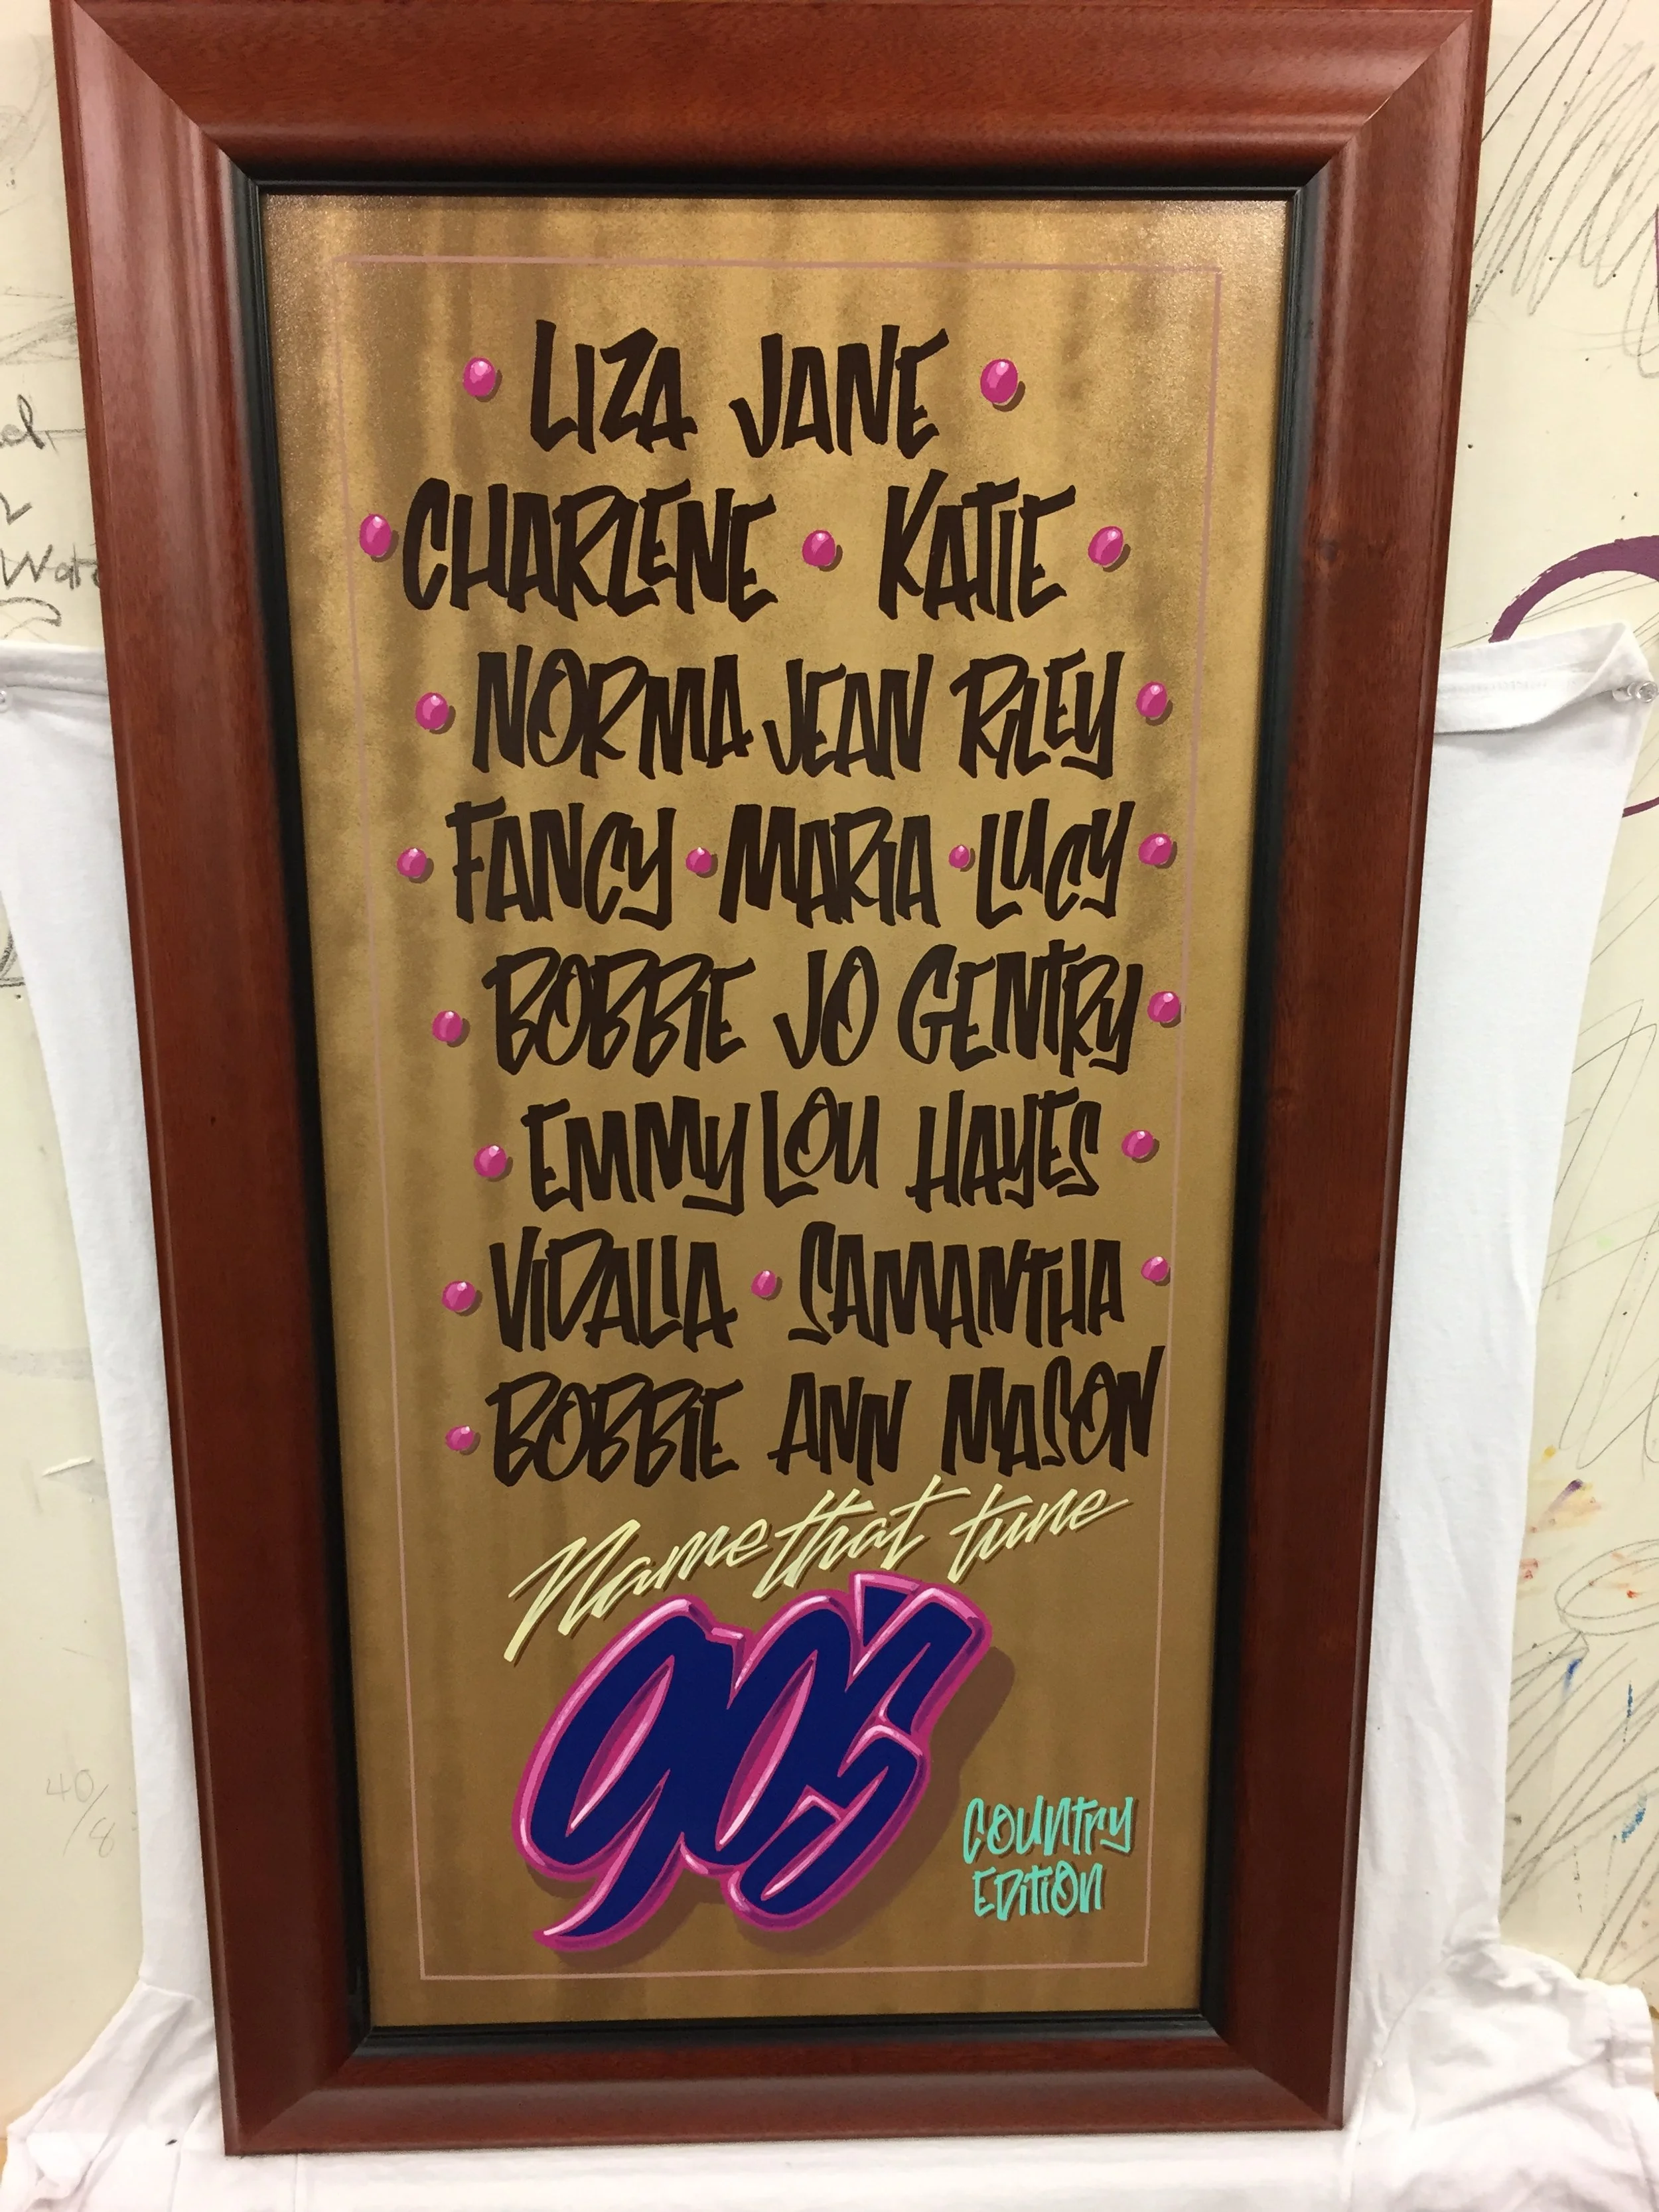 LIZA JANE
CHARLENE • KATIE
NORMA JEAN RILEY
FANCY • MARIA • LUCY
BOBBIE JO GENTRY
EMMY LOU HAYES
VIDALIA • SAMANTHA
BOBBIE ANN MASON
Name that tune
90's
COUNTRY
EDITION
40/8